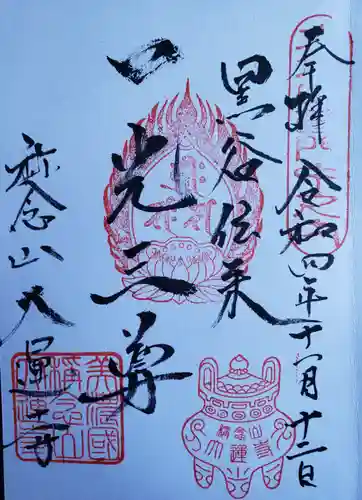 奉拝 令和四年十一月十二日
黒谷伝来
一光三尊
称念山大運寺
稱念山
大運寺